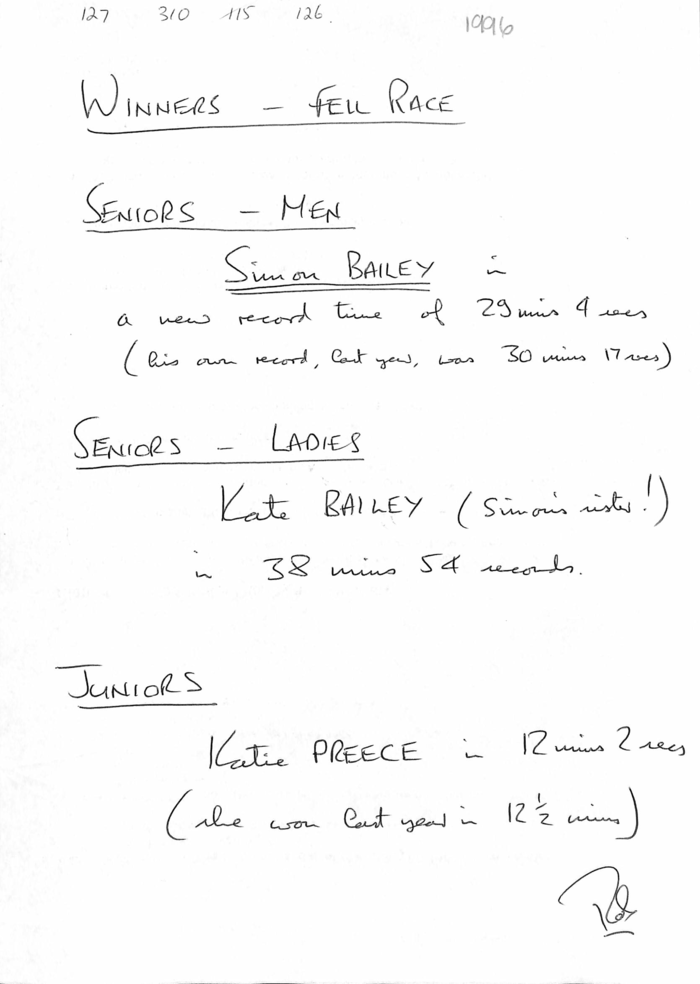 127 310 115 126.
1996
WINNERS - FELL RACE
SENIORS - MEN
Simon BAILEY in
a new record time of 29 mins 4 secs
(his own record, last year, was 30 mins 17 secs)
SENIORS - LADIES
Kate BAILEY (Simon's sister!)
in 38 mins 54 seconds.
JUNIORS
Katie PREECE in 12 mins 2 secs
(she won last year in 12 ½ mins)